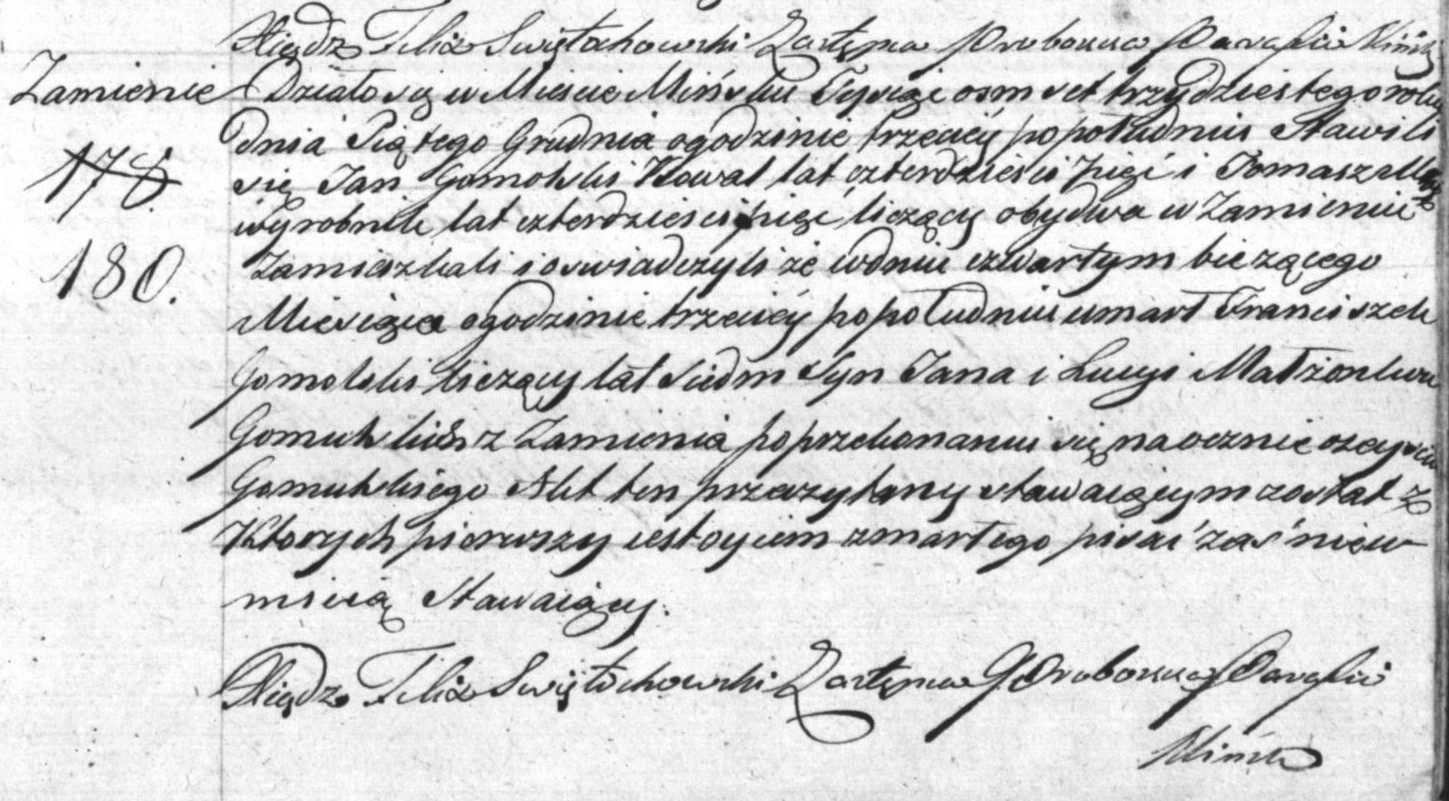 Xiądz Felix Swiętochowski Zastęmca Proboszcza Parafii Mińsk
Zamienie Działo się w Miescie Mińsku Tysiąc osmset trzydziestego roku
dnia Piątego Grudnia ogodzinie trzeciéy popołudniu Stawili
178 się Jan Gomolski Kowal lat czterdziesci pięć i Tomasz
wyrobnik lat czterdziesci pięc liczący obydwa w Zamieniu
180. Zamieszkali i oswiadczyli że wdniu czwartym bieżącego
Miesiąca ogodzinie trzeciéy popołudniu umarł Franciszek
Gomolski liczący lat siedm Syn Jana i Lucyi Małżonków
Gomulskich z Zamienia poprzekonaniu się naocznie ozeyściu
Gomulskiego Akt ten przeczytany stawaiącym został z
Ktorych pierwszy iest oycem zmarłego pisać zaś nieu-
mieią Stawaiący.
Xiądz Felix Swiętochowski Zastęmca Proboszcza Parafii
Mińsk